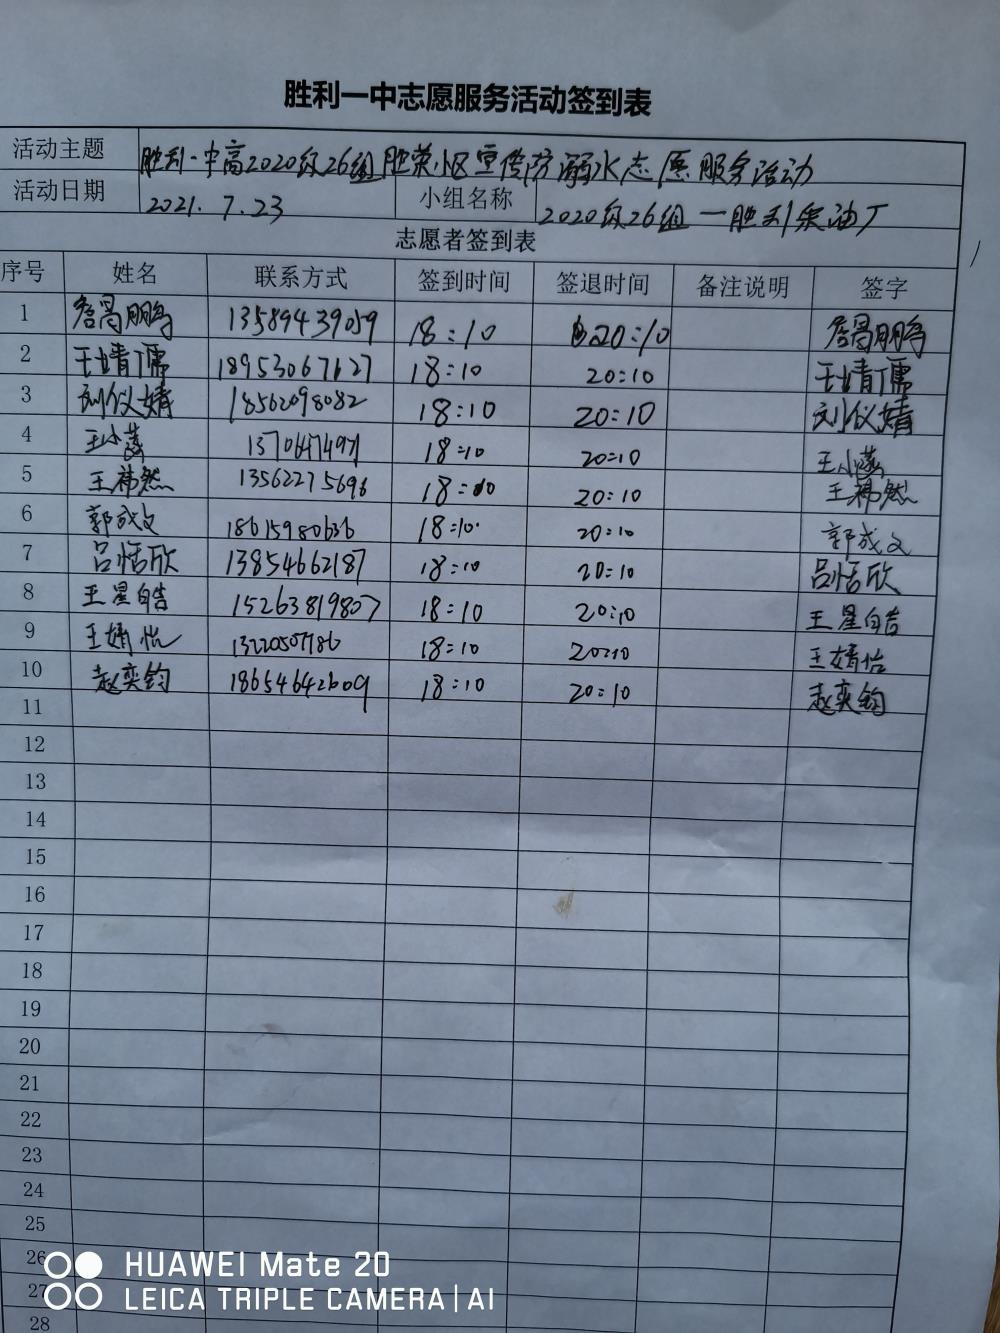 胜利一中志愿服务活动签到表
活动主题 胜利一中高2020级26组胜荣小区宣传防溺水志愿服务活动
活动日期 2021.7.23 小组名称 2020级26组一胜利采油厂
志愿者签到表
序号 姓名 联系方式 签到时间 签退时间 备注说明 签字
1 詹景鹏 13589439059 18:10 20:10 詹景鹏
2 王婧儒 18953067127 18:10 20:10 王婧儒
3 刘仪婧 18562098082 18:10 20:10 刘仪婧
4 王小菡 18:10 20:10 王小菡
5 王祎然 13562275696 18:10 20:10 王祎然
6 郭成文 18615980636 18:10 20:10 郭成文
7 吕恬欣 13854662187 18:10 20:10 吕恬欣
8 王星皓 15263819807 18:10 20:10 王星皓
9 王婧怡 13220507186 18:10 20:10 王婧怡
10 赵奕钧 18654642609 18:10 20:10 赵奕钧
11
12
13
14
15
16
17
18
19
20
21
22
23
24
25
26
27
28
HUAWEI Mate 20
LEICA TRIPLE CAMERA | AI